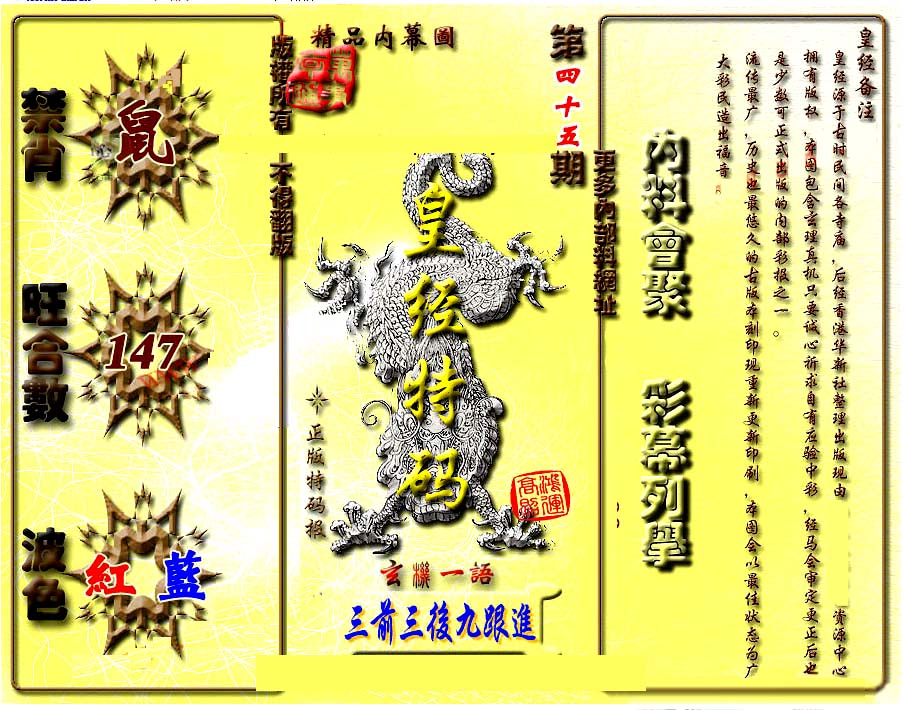 精品内幕圖
第四十五期
版權所有
不得翻版
更多内部料網址
禁肖
鼠
旺合數
147
波色
紅 藍
皇经特码
正版特码报
鴻運高照
玄機一語
三前三後九跟進
内料會聚
彩幕列舉
皇经备注
皇经源于古时民间各寺庙，后经香港华新社整理出版现由
资源中心
拥有版权，本图包含玄理真机只要诚心祈求自有应验中彩，经马会审定更正后也
是少数可正式出版的内部彩报之一。
流传最广，历史也最悠久的古版本刻印现重新更新印刷，本图会以最佳状态为广
大彩民造出福音